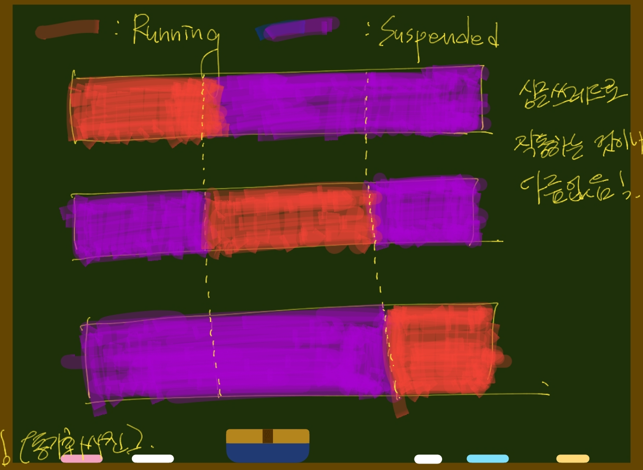 : Running
: Suspended
싱글쓰레드로
작동하는 것이나
다름없음!